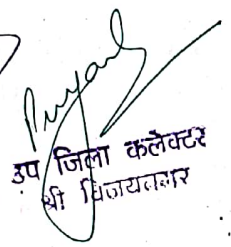 उप जिला कलेक्टर
श्री विजयनगर